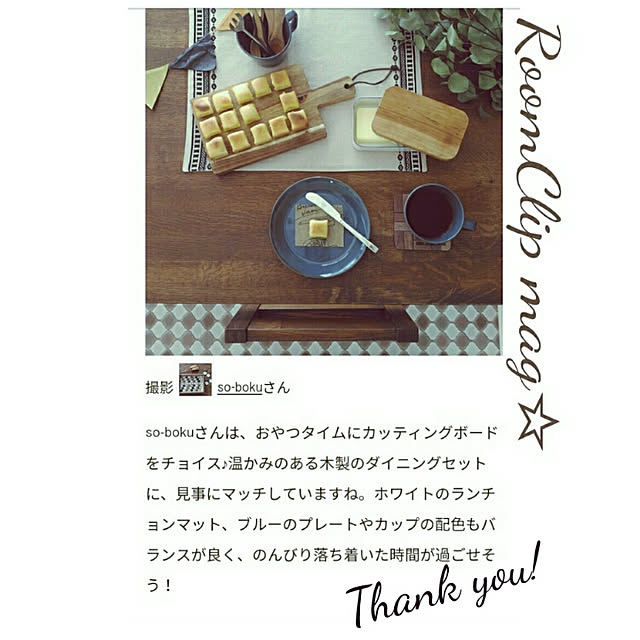 RoomClip mag☆
撮影 so-bokuさん
so-bokuさんは、おやつタイムにカッティングボード
をチョイス♪温かみのある木製のダイニングセット
に、見事にマッチしていますね。ホワイトのランチ
ョンマット、ブルーのプレートやカップの配色もバ
ランスが良く、のんびり落ち着いた時間が過ごせそ
う！
Thank you!